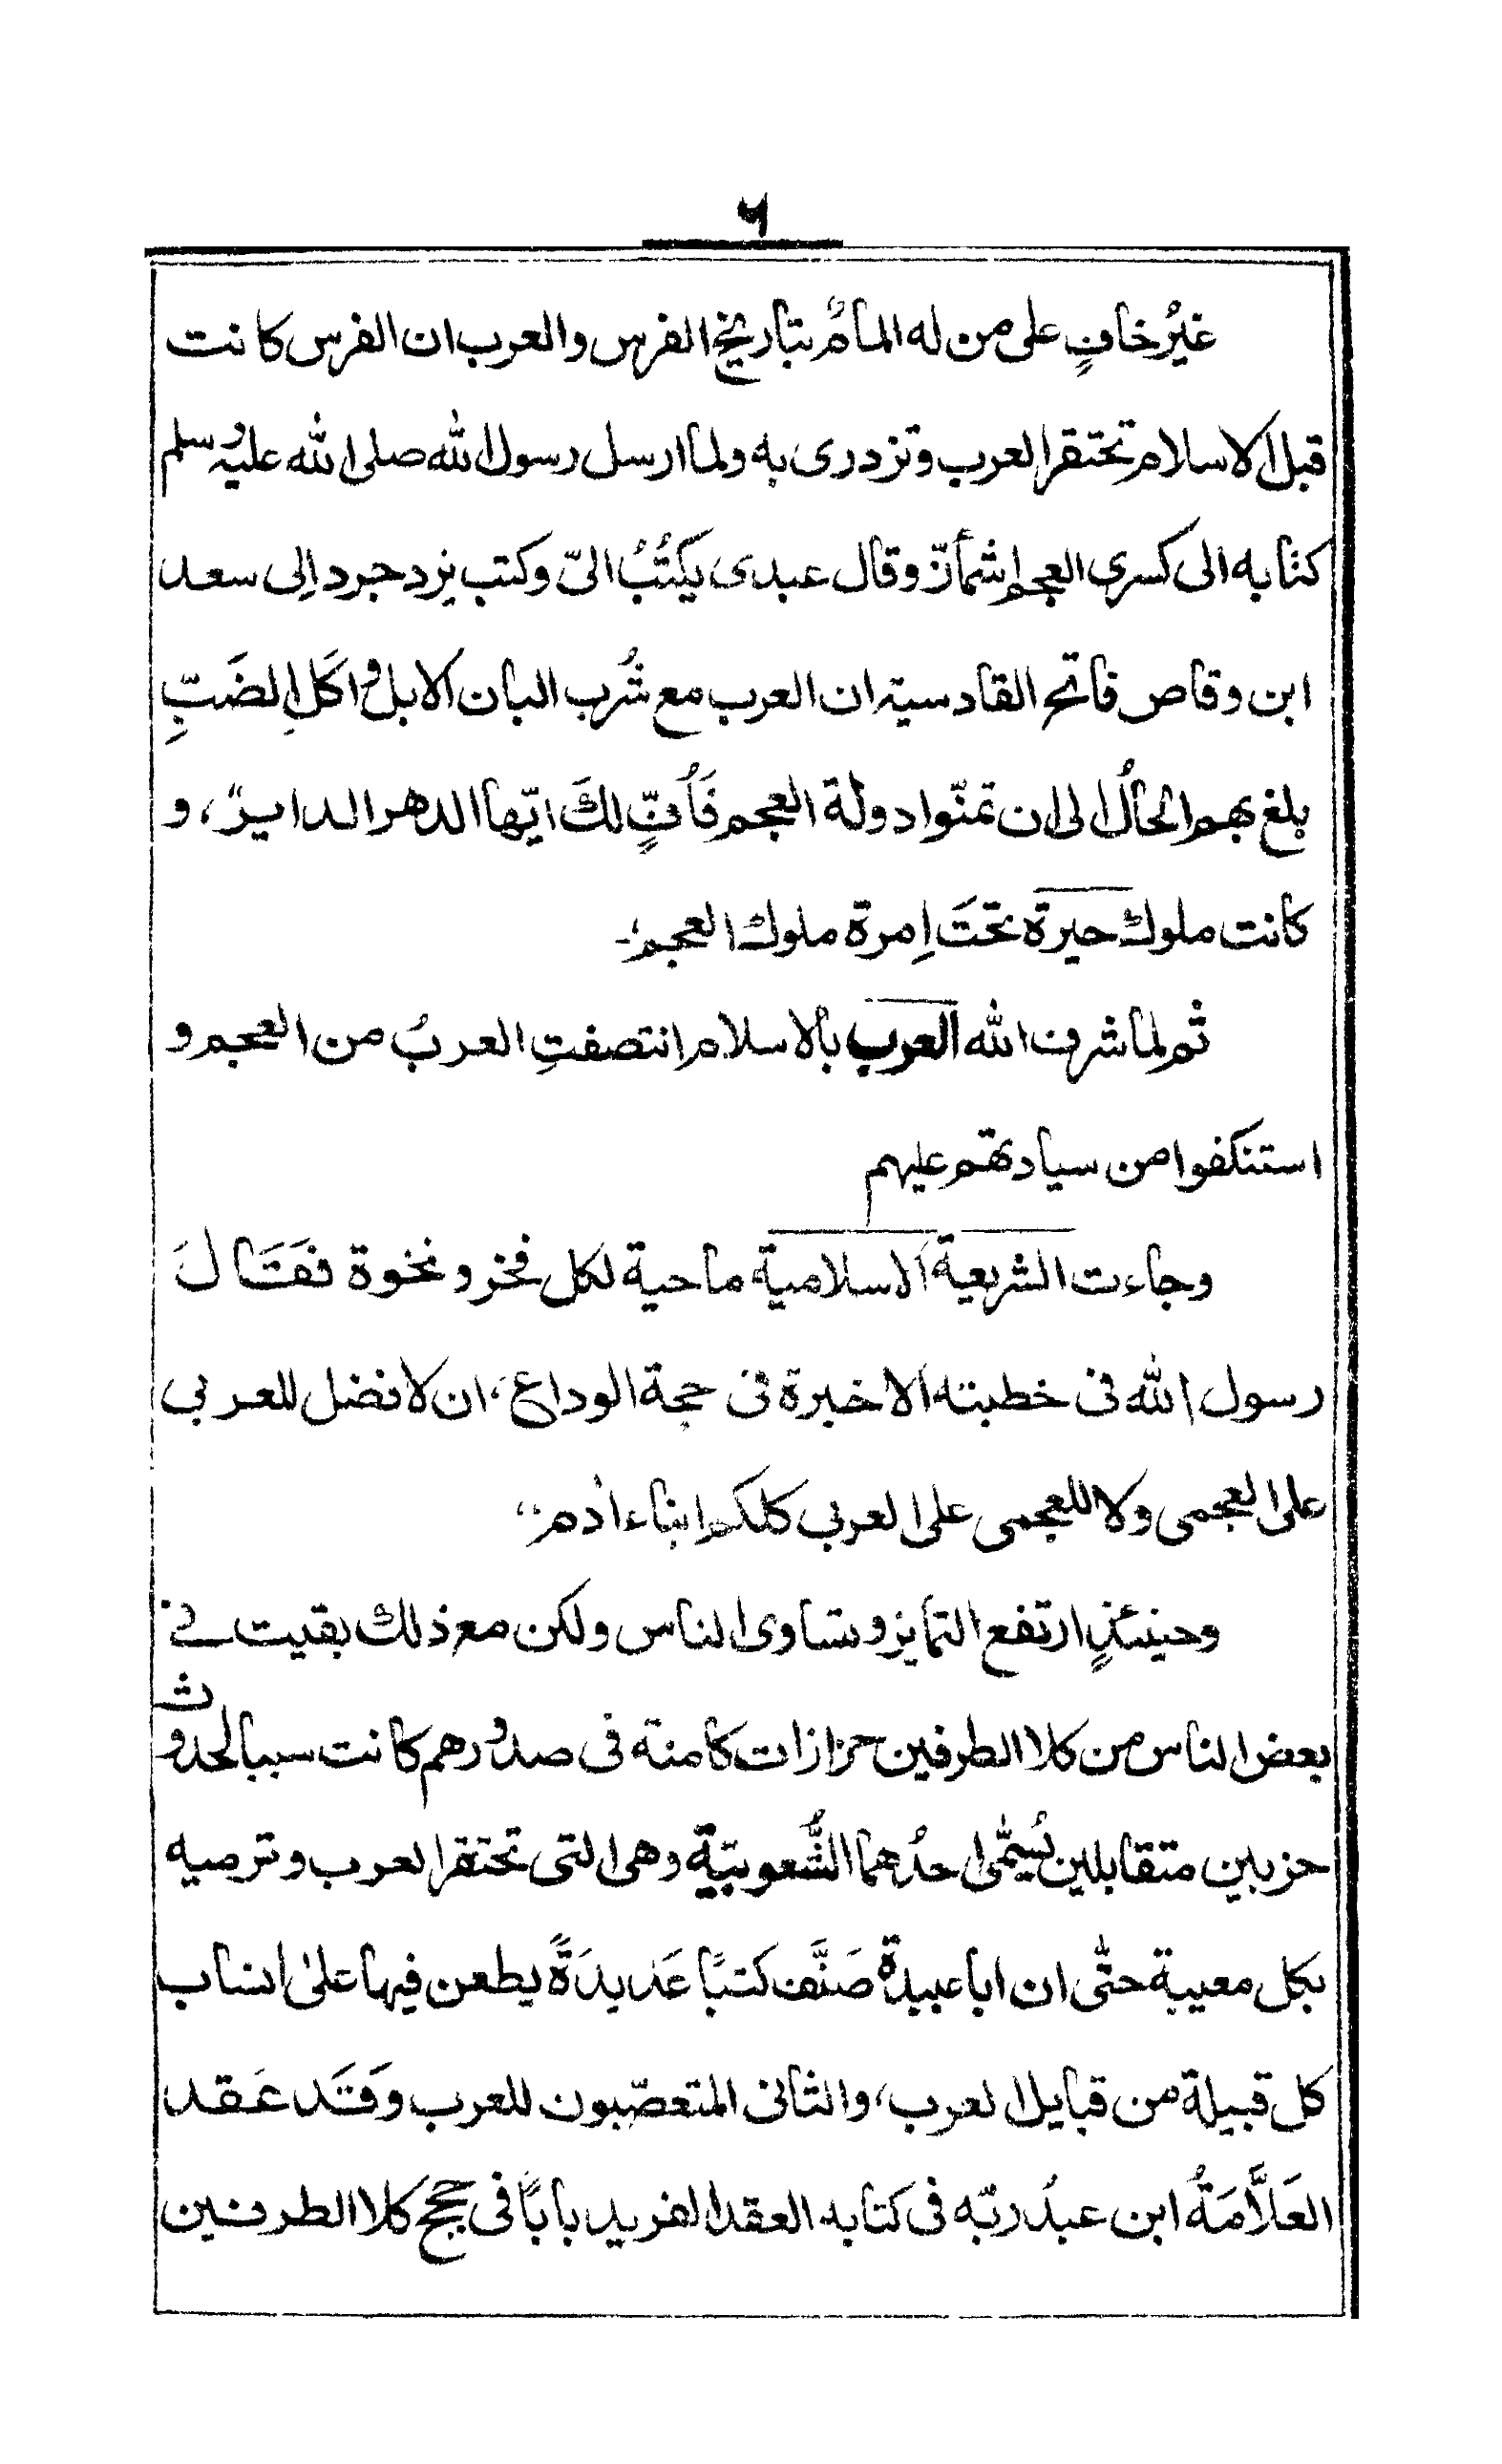 ٦
غيرُ خافٍ على من له المامٌ بتاريخ الفرس والعرب ان الفرس كانت
قبل الاسلام تحتقر العرب وتزدرى به ولما ارسل رسول الله صلى الله عليه وسلم
كتابه الى كسرى العجم اشمأزّ وقال عبدى يكتُبُ الىّ وكتب يزدجرد إلى سعد
ابن وقاص فاتح القادسية ان العرب مع شُرب البان الابل واكل الضَبّ
بلغ بهم الحالُ الى ان تمنّوا دولة العجم فَأُفٍّ لكَ ايّها الدهر الداير، و
كانت ملوك حيرة تحتَ إمرة ملوك العجم۔
ثم لما شرف الله العرب بالاسلام انتصفتِ العربُ من العجم و
استنكفوا من سيادتهم عليهم
وجاءت الشريعة الاسلامية ماحية لكل فخر ونخوة فقَالَ
رسول الله فى خطبته الاخيرة فى حجة الوداع، ان لا فضل للعربى
على العجمى ولا للعجمى على العربى كلكم ابناء اٰدم"
وحينئذٍ ارتفع التمايز وتساوى الناس ولكن مع ذلك بقيت فى
بعض الناس من كلا الطرفين حزازات كامنة فى صدورهم كانت سببا لحدوث
حزبين متقابلين يُسمّٰى احدُهما الشُّعوبيّة وهى التى تحتقر العرب وترميه
بكل معيبة حتّٰى ان ابا عبيدة صَنَّف كتبًا عَديدَةً يطعن فيها علىٰ انساب
كل قبيلة من قبايل العرب، والثانى المتعصّبون للعرب وقَد عَقد
العَلَّامَةُ ابن عبدُ ربّه فى كتابه العقد الفريد بابًا فى حجج كلا الطرفين